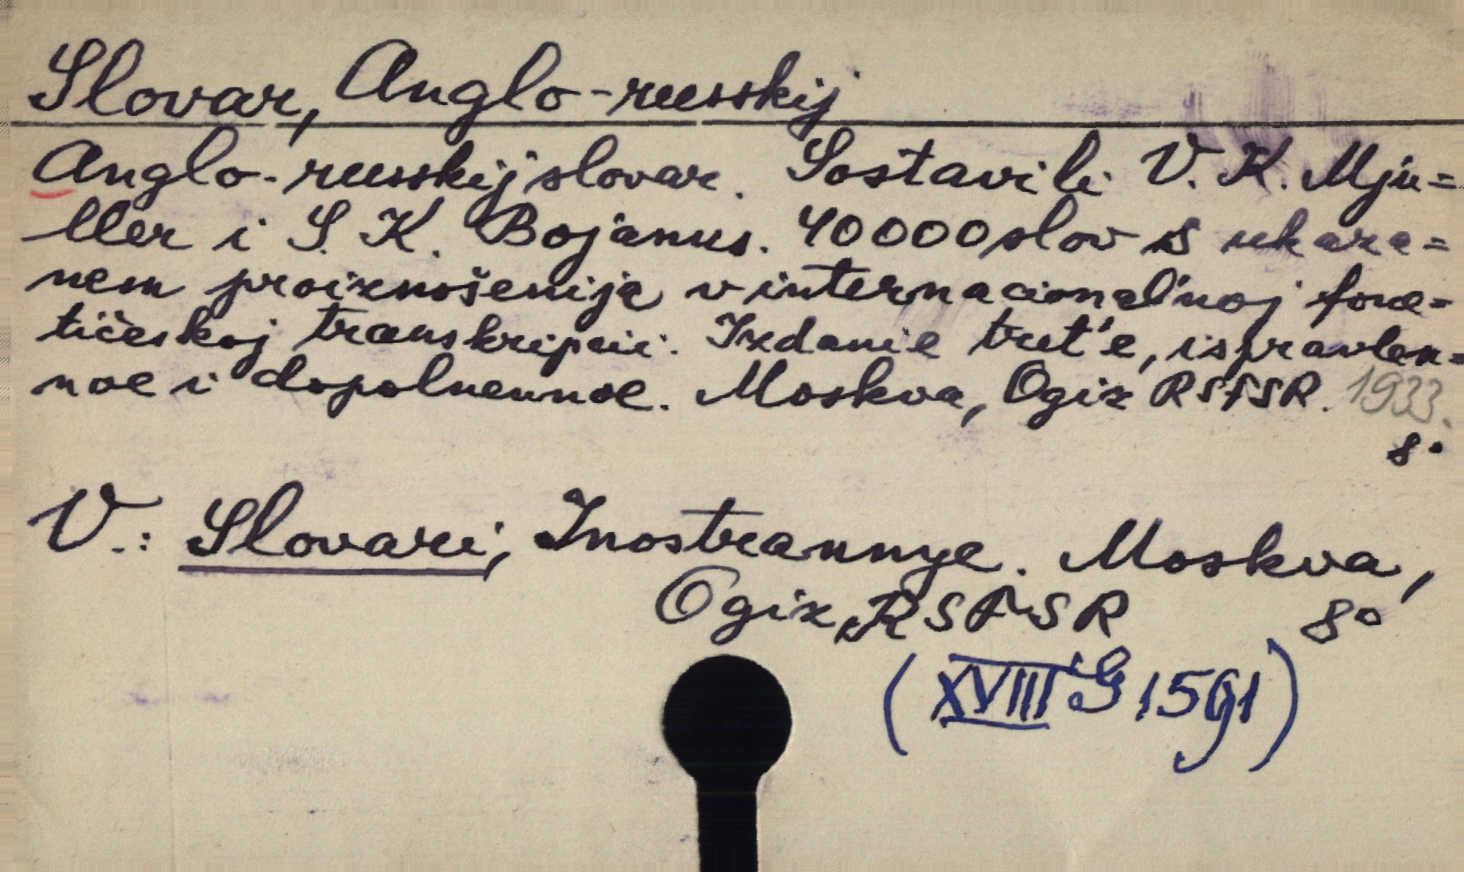 Slovar, Anglo-russkij
Anglo-russkij slovar. Sostavili V. K. Mju=
ller i S. K. Bojanus. 40000 slov s ukaza=
nem proiznošenija v internacional'noj fone=
tičeskoj transkripcii. Izdanie tret'e, ispravlen=
noe i dopolnennoe. Moskva, Ogiz RSFSR. 1933.
8°
V.: Slovari, Inostrannye. Moskva,
Ogiz, RSFSR 8°
(XVIII G 1591)